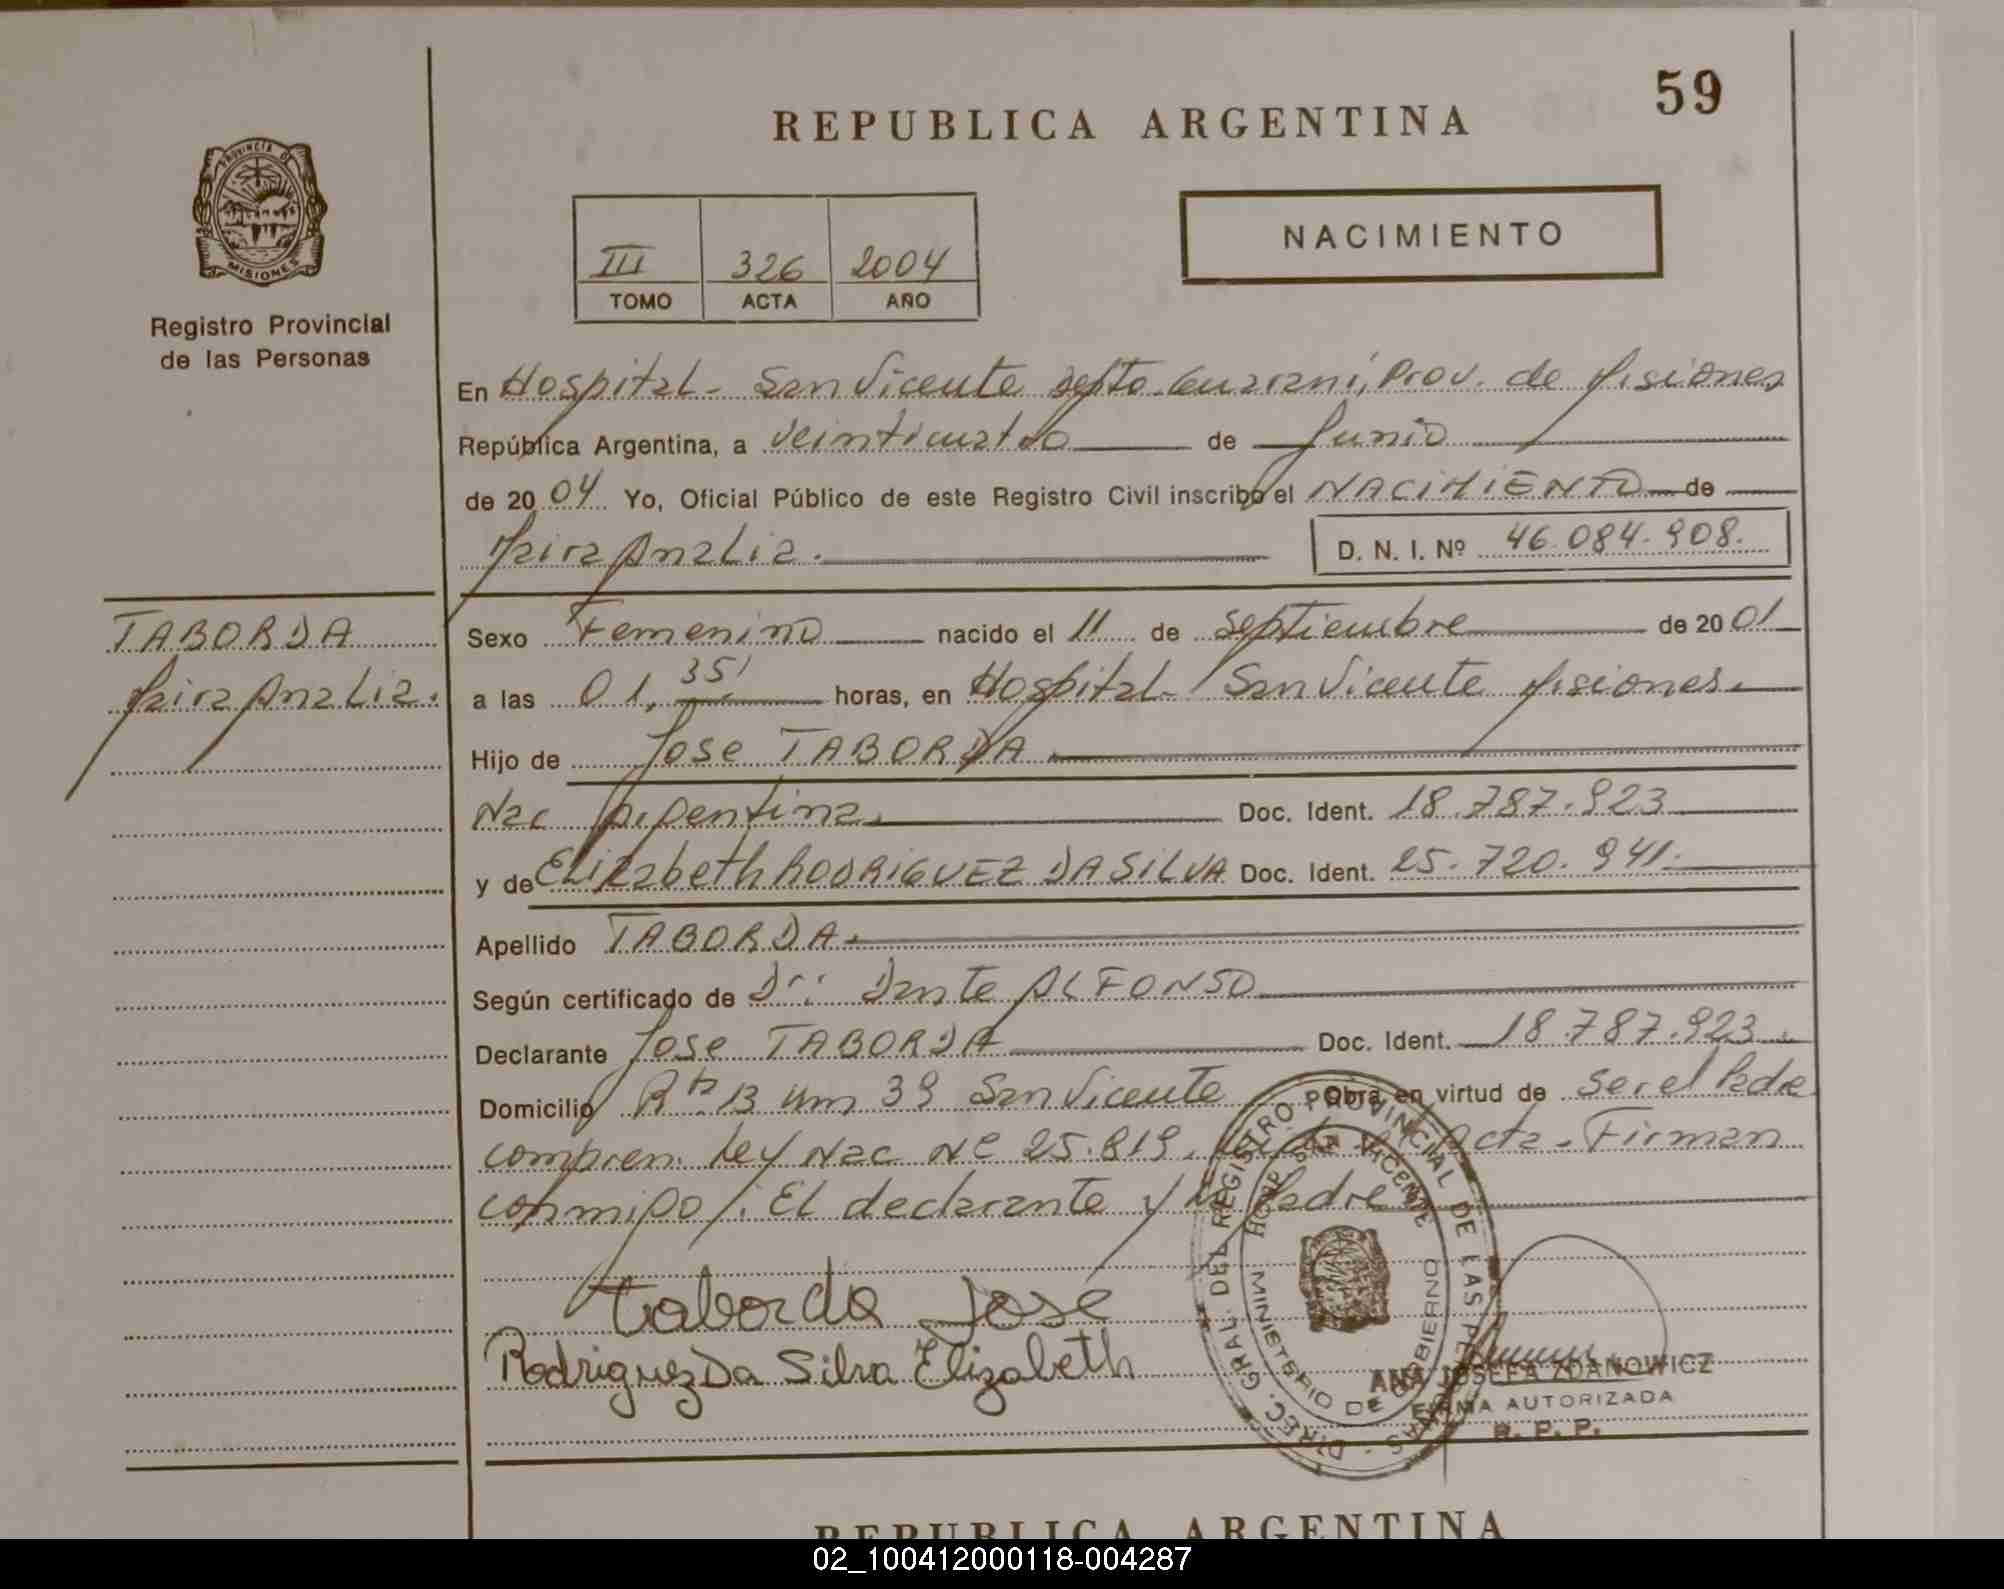 59
REPUBLICA ARGENTINA
PROVINCIA DE
MISIONES
Registro Provincial
de las Personas
III 326 2004
TOMO ACTA AÑO
NACIMIENTO
En Hospital - San Vicente Dpto. Guaraní, Prov. de Misiones
República Argentina, a veinticuatro de Junio
de 2004 Yo, Oficial Público de este Registro Civil inscribo el NACIMIENTO de
Maira Analia.
D. N. I. Nº 46.084.908.
TABORDA
Maira Analia.
Sexo Femenino nacido el 11 de Septiembre de 2001
a las 01, 35' horas, en Hospital - San Vicente Misiones.
Hijo de Jose TABORDA
Nac Argentina. Doc. Ident. 18.787.923
y de Elizabeth RODRIGUEZ DA SILVA Doc. Ident. 25.720.941.
Apellido TABORDA.
Según certificado de Dr: Dante ALFONSO
Declarante Jose TABORDA Doc. Ident. 18.787.923.
Domicilio Rta. 13 Km 39 San Vicente Obra en virtud de ser el Padre
compren. Ley Nac Nº 25.819. Acta - Firman
conmigo: El declarante y la Madre
Taborda Jose
Rodriguez Da Silva Elizabeth
DIREC. GRAL. DEL REGISTRO PROVINCIAL DE LAS PERSONAS
HOSP. SAN VICENTE
MINISTERIO DE GOBIERNO
ANA JOSEFA ZDANOWICZ
FIRMA AUTORIZADA
R. P. P.
REPUBLICA ARGENTINA
02_100412000118-004287